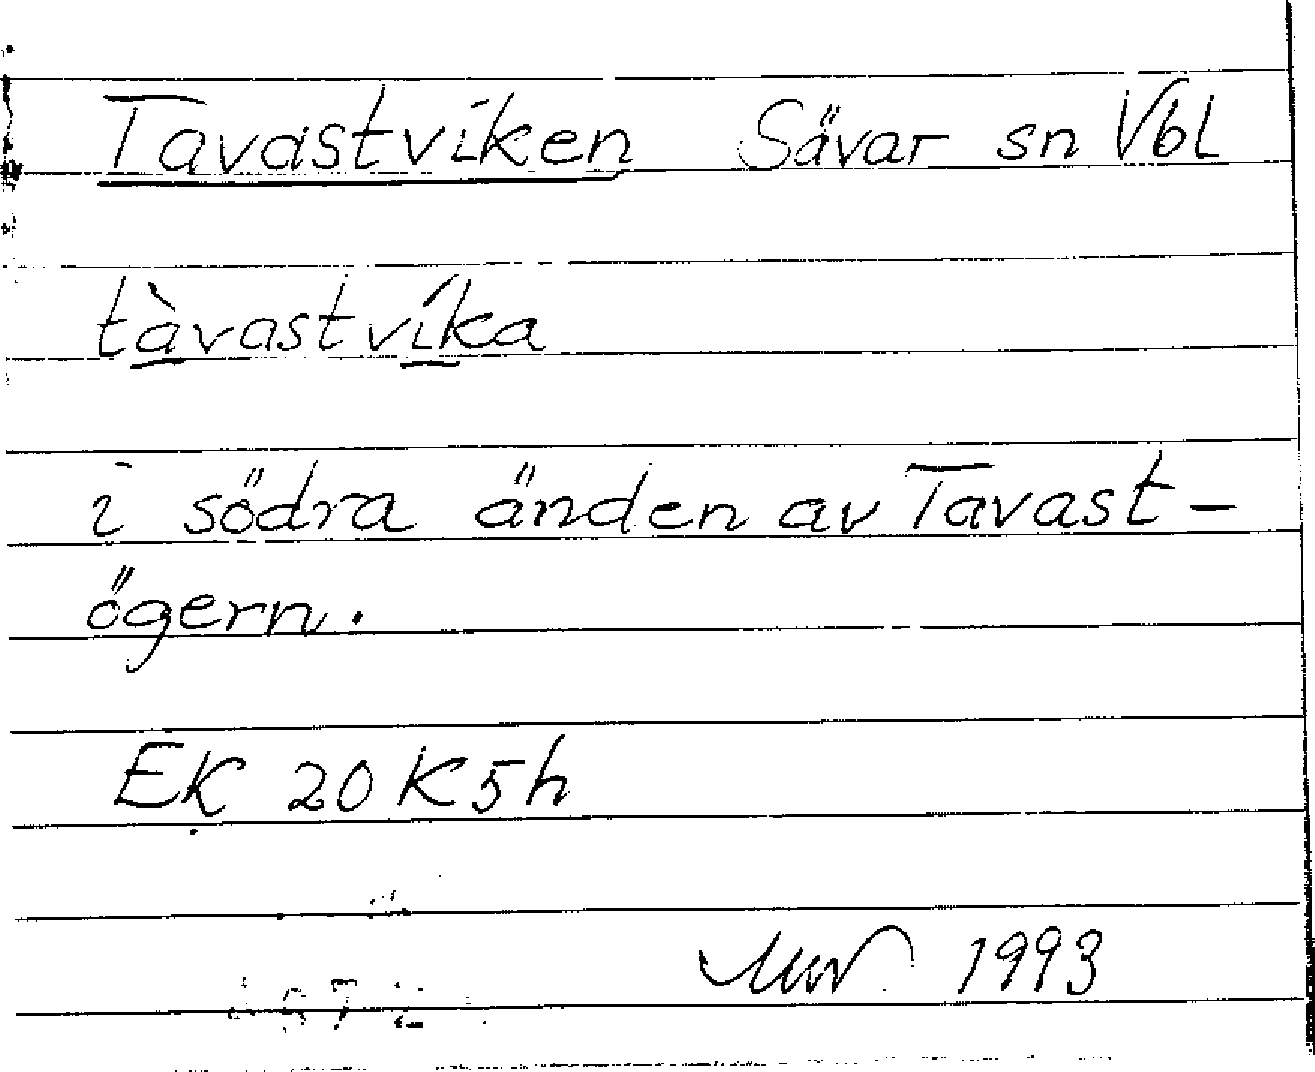 Tavastviken Sävar sn Vbl
tàvastvíka
i södra änden av Tavast-
ögern.
EK 20 K 5h
1993